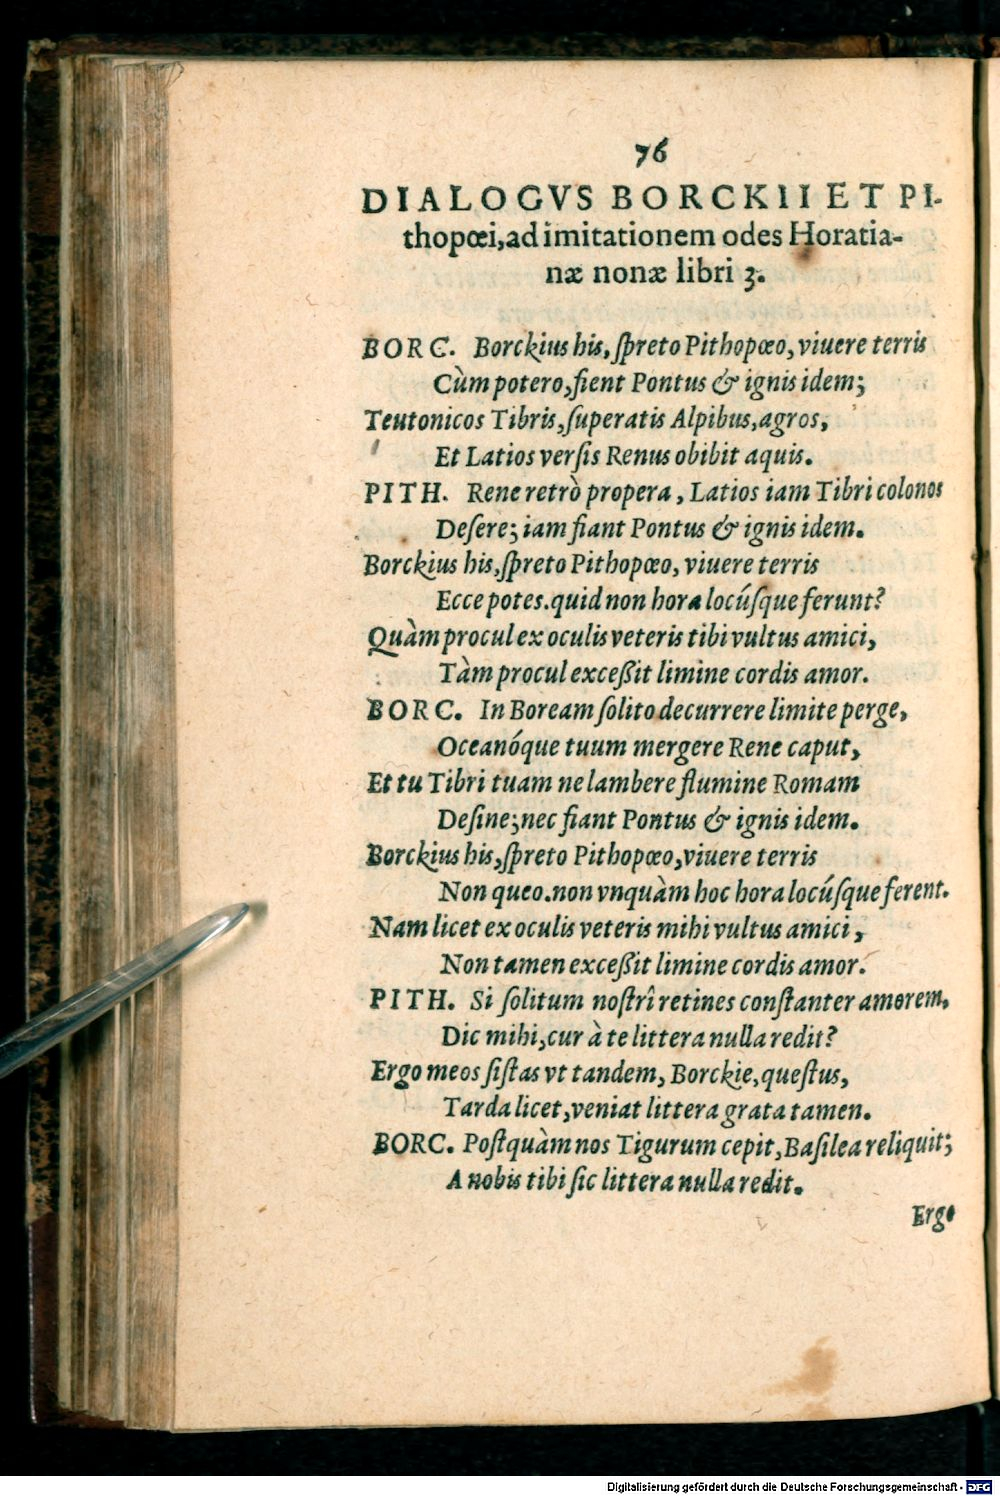 76
DIALOGVS BORCKII ET PI-
thopœi, ad imitationem odes Horatia-
næ nonæ libri 3.
BORC. Borckius his, ſpreto Pithopœo, viuere terris
Cùm potero, fient Pontus & ignis idem;
Teutonicos Tibris, ſuperatis Alpibus, agros,
Et Latios verſis Renus obibit aquis.
PITH. Rene retrò propera, Latios iam Tibri colonos
Deſere; iam fiant Pontus & ignis idem.
Borckius his, ſpreto Pithopœo, viuere terris
Ecce potes. quid non hora locúſque ferunt?
Quàm procul ex oculis veteris tibi vultus amici,
Tàm procul exceßit limine cordis amor.
BORC. In Boream ſolito decurrere limite perge,
Oceanóque tuum mergere Rene caput,
Et tu Tibri tuam ne lambere flumine Romam
Deſine; nec fiant Pontus & ignis idem.
Borckius his, ſpreto Pithopœo, viuere terris
Non queo. non vnquàm hoc hora locúſque ferent.
Nam licet ex oculis veteris mihi vultus amici,
Non tamen exceßit limine cordis amor.
PITH. Si ſolitum noſtrî retines conſtanter amorem,
Dic mihi, cur à te littera nulla redit?
Ergo meos ſiſtas vt tandem, Borckie, queſtus,
Tarda licet, veniat littera grata tamen.
BORC. Poſtquàm nos Tigurum cepit, Baſilea reliquit;
A nobis tibi ſic littera nulla redit.
Ergo
Digitalisierung gefördert durch die Deutsche Forschungsgemeinschaft - DFG